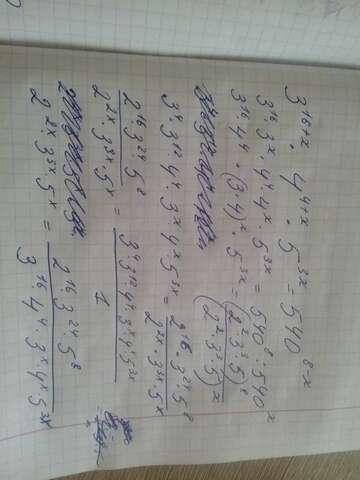 3^{16+x} · 4^{4+x} · 5^{3x} = 540^{8-x}
3^{16} · 3^x · 4^4 · 4^x · 5^{3x} = 540^8 : 540^x
3^{16} · 4^4 · (3·4)^x · 5^{3x} = (2^2·3^3·5)^8 / (2^2·3^3·5)^x
3^4 · 3^{12} · 4^4 · 3^x · 4^x · 5^{3x} = 2^{16} · 3^{24} · 5^8 / 2^{2x} · 3^{3x} · 5^x
2^{16} · 3^{24} · 5^8 / 2^{2x} · 3^{3x} · 5^x = 3^4 · 3^{12} · 4^4 · 3^x · 4^x · 5^{3x} / 1
2^{2x} · 3^{3x} · 5^x = 2^{16} · 3^{24} · 5^8 / 3^{16} · 4^4 · 3^x · 4^x · 5^{3x}